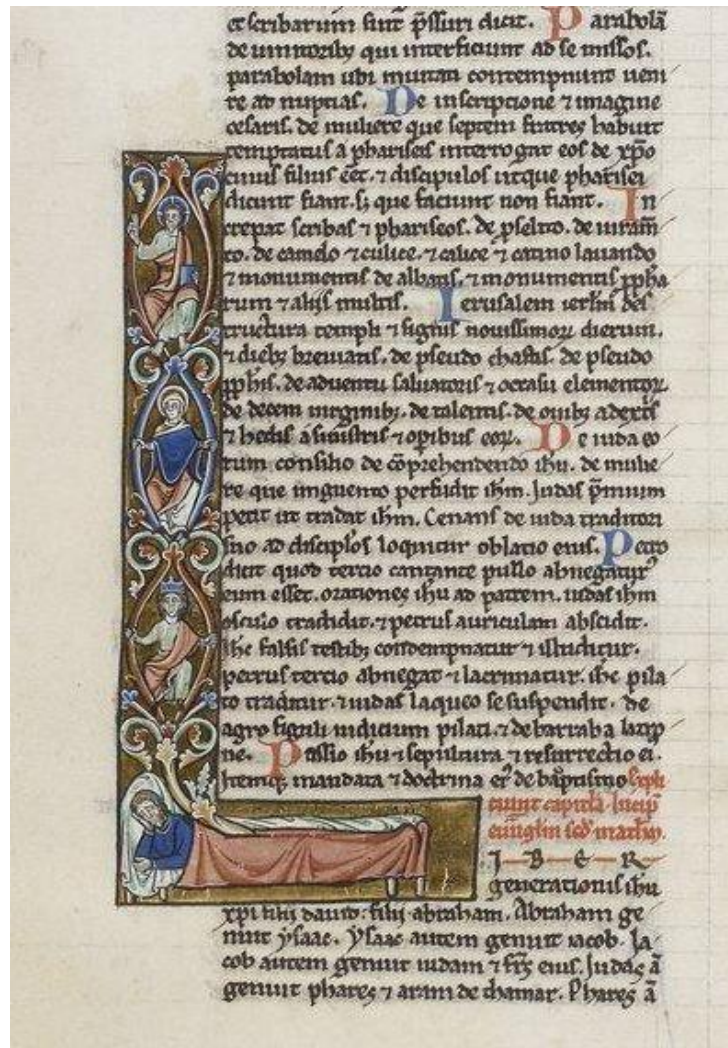 et scribarum sint p̄ssuri dicit. Parabolā
de uinitorib; qui interficiunt ad se missos.
parabolam ubi inuitati contempnunt ueni
re ad nuptias. De inscriptione ⁊ imagine
cesaris. de muliere que septem fratres habuit
temptatus a phariseis interrogat eos de xp̄o
cuius filius ēet. ⁊ discipulos ut que pharisei
dicunt fiant. s; que faciunt non fiant. In
crepat scribas ⁊ phariseos. de pselito. de iuram̄
to. de camelo ⁊ culice. ⁊ calice ⁊ catino lauando
⁊ monumentis de albatis. ⁊ monumentis ꝓpha
rum ⁊ aliis multis. Ierusalem ierl̄m des
tructura templi ⁊ signis nouissimoꝝ dierum.
⁊ dieb; breuiatis. de pseudo christis. de pseudo
ꝓph̄is. de aduentu saluatoris ⁊ occasu elementoꝝ.
de decem uirginib;. de talentis. de ouib; a dext̄s
⁊ hedis a sinistris ⁊ op̄ibus eoꝝ. De iuda eo
rum consilio de cōprehendendo ih̄u. de mulie
re que unguento perfudit ih̄m. Judas p̄mium
petit ut tradat ih̄m. Cenans de iuda traditori
suo ad discip̄los loquitur oblatio eius. Petro
dicit quod tercio cantante pullo abnegatur
eum esset. orationes ih̄u ad patrem. iudas ih̄m
osculo tradidit. ⁊ petrus auriculam abscidit.
ih̄c falsis testib; condempnatur ⁊ illuditur.
petrus tercio abnegat ⁊ lacrimatur. ih̄c pila
to traditur. ⁊ iudas laqueo se suspendit. de
agro figuli iudicium pilati. ⁊ de barraba latro
ne. Passio ih̄u ⁊ sepultura ⁊ resurrectio ei.
Itemq; mandata ⁊ doctrina ei᷒ de baptismo Expli
ciunt capitula. Incip̄
euu̅gliu̅ scd̄m matheū.
I B E R
generationis ih̄u
xp̄i filii dauid. filii abraham. Abraham ge
nuit ysaac. Ysaac autem genuit iacob. Ia
cob autem genuit iudam ⁊ fr̄s eius. Judas ā
genuit phares ⁊ aram de thamar. Phares ā